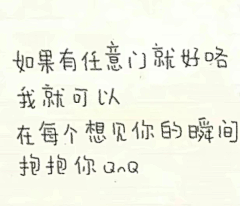 如果有任意门就好咯
我就可以
在每个想见你的瞬间
抱抱你QnQ